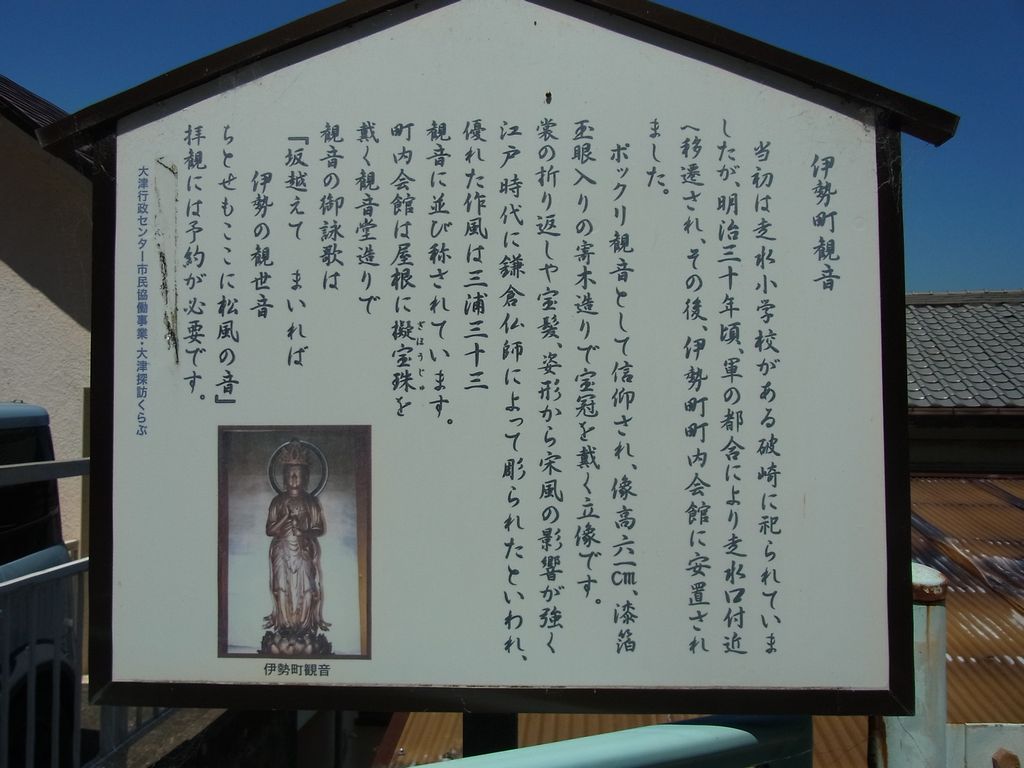 伊勢町観音
当初は走水小学校がある破崎に祀られていま
したが、明治三十年頃、軍の都合により走水口付近
へ移遷され、その後、伊勢町町内会館に安置され
ました。
ポックリ観音として信仰され、像高六一㎝、漆箔
玉眼入りの寄木造りで宝冠を戴く立像です。
裳の折り返しや宝髪、姿形から宋風の影響が強く
江戸時代に鎌倉仏師によって彫られたといわれ、
優れた作風は三浦三十三
観音に並び称されています。
町内会館は屋根に擬宝珠を
ぎほうじゅ
戴く観音堂造りで
観音の御詠歌は
『坂越えて まいれば
伊勢の観世音
ちとせもここに松風の音』
拝観には予約が必要です。
大津行政センター市民協働事業・大津探訪くらぶ
伊勢町観音